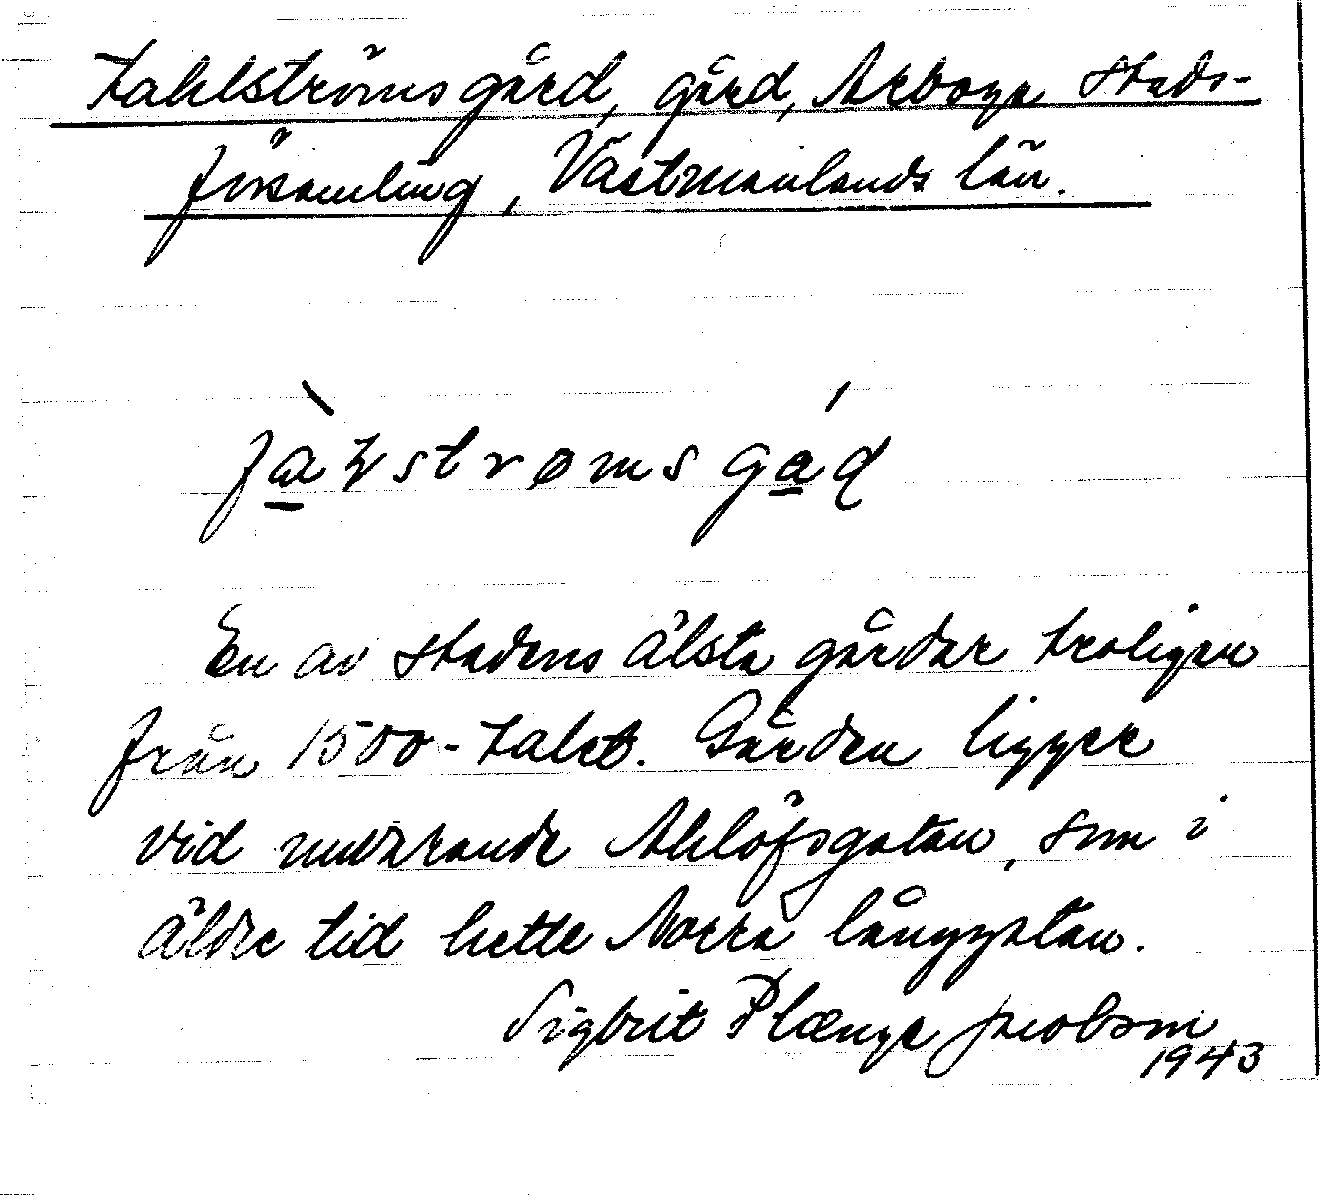 Kahlströmsgård, gård, Arboga stads-
församling, Västmanlands län.
strømsgád
En av stadens älsta gårdar troligen
från 1500-talet. Gården ligger
vid nuvarande Ahllöfsgatan, som i
äldre tid hette Norra långgatan.
Sigbrit Plænge Jacobson
1943